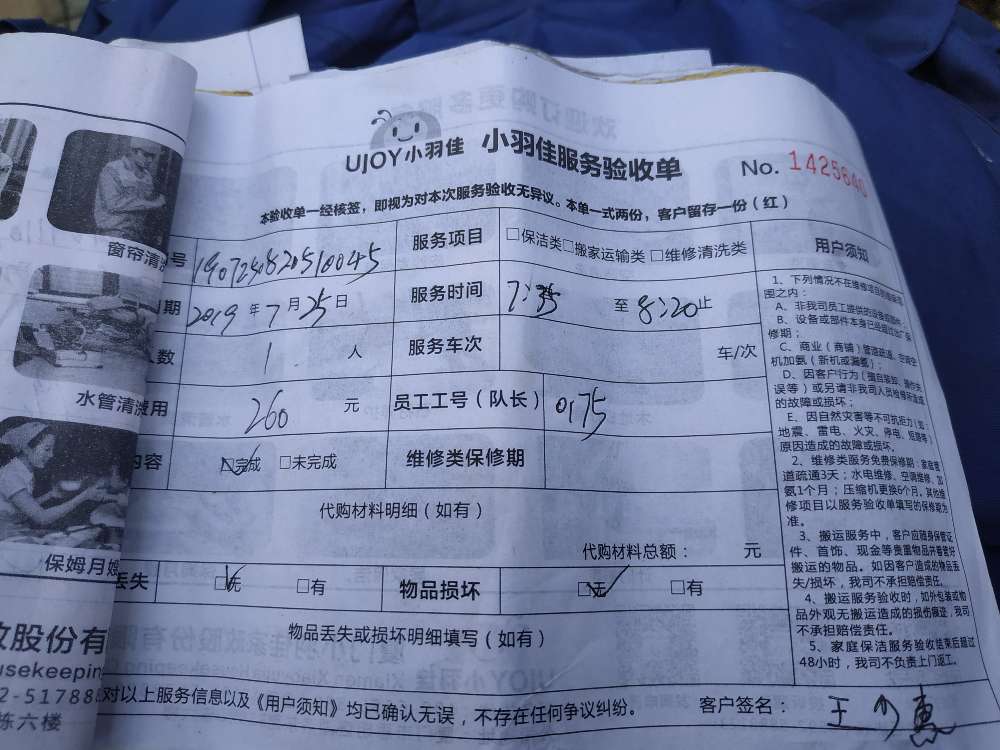 UJOY小羽佳 小羽佳服务验收单 No. 1425640
本验收单一经核签，即视为对本次服务验收无异议。本单一式两份，客户留存一份（红）
号 1907250820510045 服务项目 □保洁类□搬家运输类 □维修清洗类 用户须知
期 2019 年 7 月 25 日 服务时间 7:35 至 8:20止
人数 1 人 服务车次 车/次
费用 260 元 员工工号（队长） 0175
内容 □完成 □未完成 维修类保修期
代购材料明细（如有）
代购材料总额： 元
丢失 □无 □有 物品损坏 □无 □有
物品丢失或损坏明细填写（如有）
对以上服务信息以及《用户须知》均已确认无误，不存在任何争议纠纷。 客户签名：
1、下列情况不在维修项目
围之内：
A、非我司员工提供的设备或部件；
B、设备或部件本身已经超过厂保
修期；
C、商业（商铺）管道疏通、空调空
机加氨（新机或漏氨）；
D、因客户行为（擅自装卸、操作失
误等）或另请非我司人员检修所造成
的故障或损坏；
E、因自然灾害等不可抗拒力（如：
地震、雷电、火灾、停电、短路等）
原因造成的故障或损坏。
2、维修类服务免费保修期：家庭管
道疏通3天；水电维修、空调维修、加
氨1个月；压缩机更换6个月，其他维
修项目以服务验收单填写的保修期为
准。
3、搬运服务中，客户应随身保管证
件、首饰、现金等贵重物品并看管好
搬运的物品。如因客户造成的物品丢
失/损坏，我司不承担赔偿责任。
4、搬运服务验收时，如外包装或物
品外观无搬运造成的损伤痕迹，我司
不承担赔偿责任。
5、家庭保洁服务验收结束后超过
48小时，我司不负责上门返工。
窗帘清
水管清
保姆月嫂
股份有
usekeeping
2-51788
栋六楼